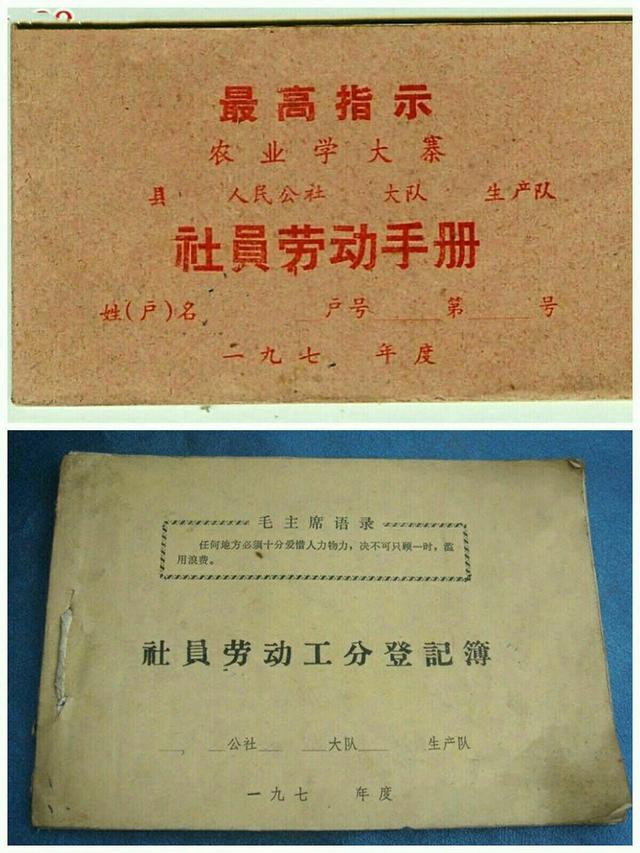 最高指示
农业学大寨
县 人民公社 大队 生产队
社員劳动手册
姓(户)名 户号 第 号
一九七 年度
毛主席语录
任何地方必须十分爱惜人力物力，决不可只顾一时，滥
用浪费。
社員劳动工分登記簿
公社 大队 生产队
一九七 年度